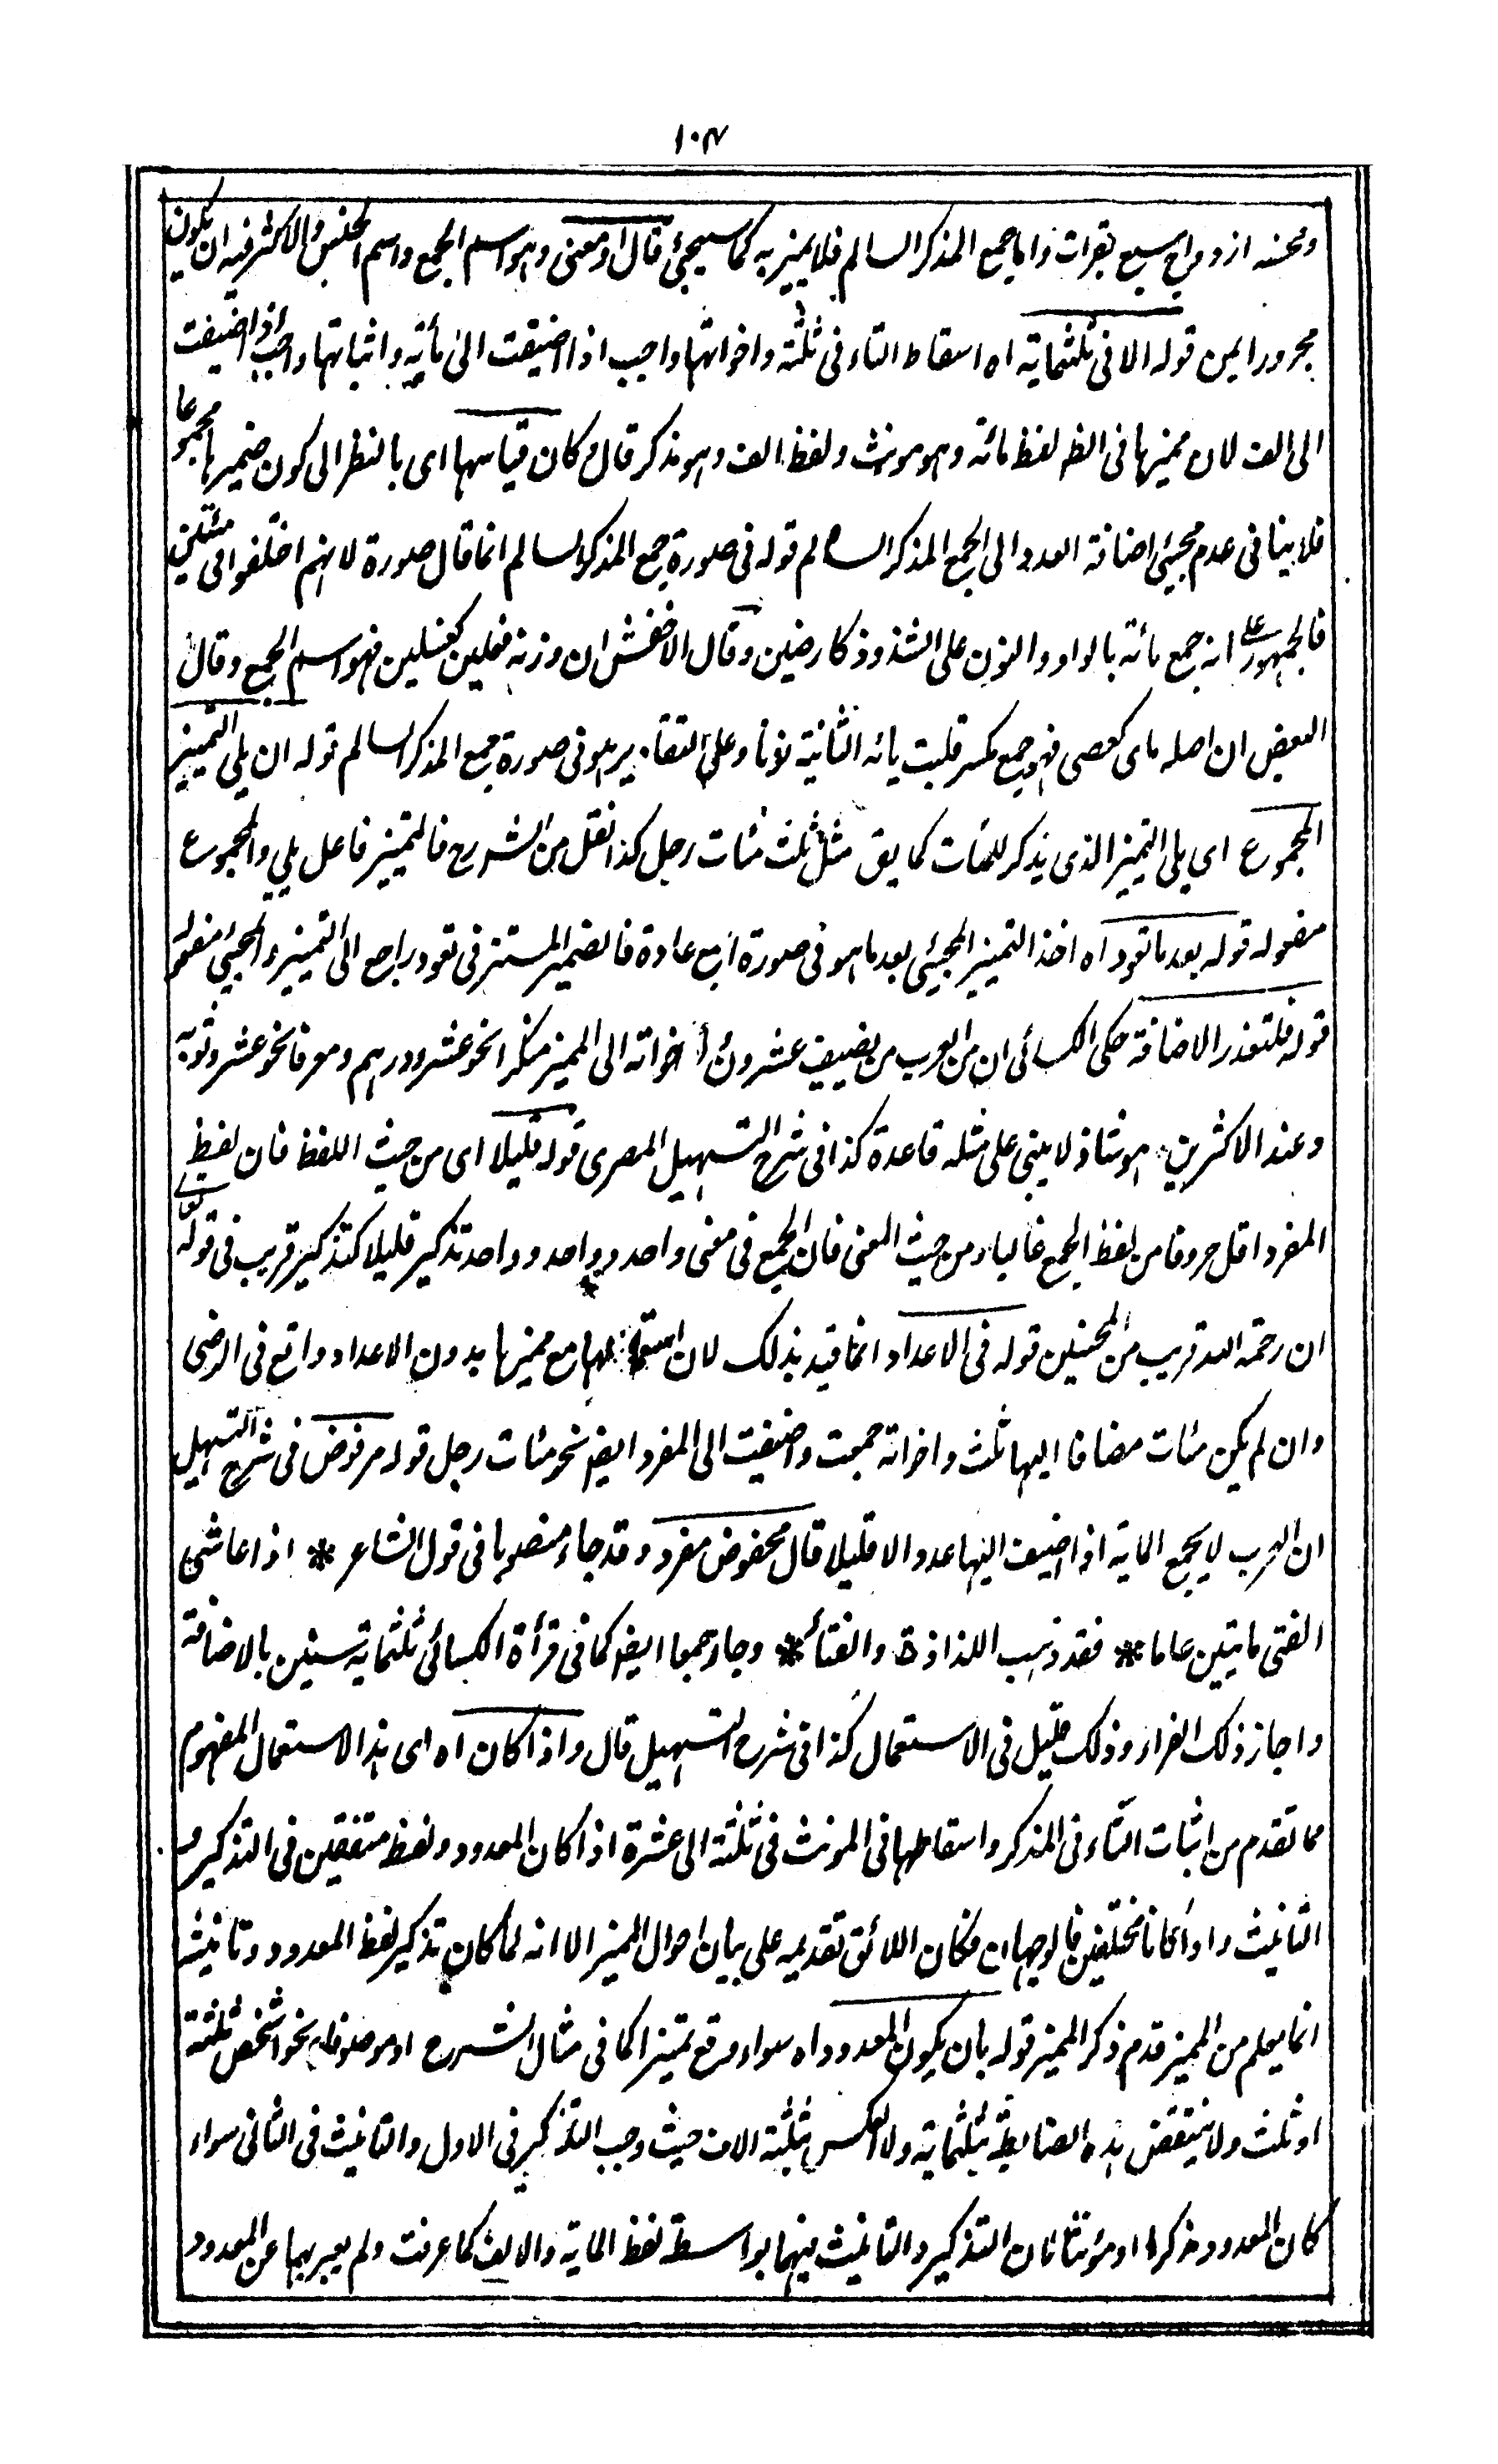 ١٠٣
وتحسنه ازدواج سبع بقرات واما جمع المذكر السالم فلا يميز به كما سيجئ قال او معنى وهو اسم الجمع واسم الجنس والاكثر فيه ان يكون
مجرورا بمن قوله الا فى ثلثماية اه اسقاط التاء فى ثلثة واخواتها واجب اذا اضيفت الى مأية واثباتها واجب اذا اضيفت
الى الف لان مميزها فى الظ لفظ مائة وهو مونث ولفظ الف وهو مذكر قال وكان قياسها اى بالنظر الى كون ضميرها مجموعا
فلا ينافى عدم مجيئ اضافة العدد الى الجمع المذكر السالم قوله فى صورة جمع المذكر السالم انما قال صورة لانهم اختلفوا فى مئين
فالجمهور على انه جمع مائة بالواو والنون على الشذوذ كارضين وقال الاخفش ان وزنه فعلين كغسلين فهو اسم الجمع وقال
البعض ان اصله ماى كعصى فهو جمع مكسر قلبت يائه الثانية نونا وعلى التقادير هو فى صورة جمع المذكر السالم قوله ان يلى التمييز
المجموع اى يلى التمييز الذى يذكر للمئات كما يق مثل ثلث مئات رجل كذا نقل من الشرح فالتمييز فاعل يلى والمجموع
مفعوله قوله بعد ما تعود اه اخذ التمييز المجيئ بعد ما هو فى صورة الجمع عادة فالضمير المستتر فى تعود راجع الى التمييز والمجيئ مفعوله
قوله فلتعذر الاضافة حكى الكسائى ان من العرب من يضيف عشرون واخواته الى المميز منكرا نحو عشرو درهم ومعرفا نحو عشرو ثوبه
وعند الاكثرين هو شاذ لا يبنى على مثله قاعدة كذا فى شرح التسهيل المصرى قوله قليلا اى من حيث اللفظ فان لفظ
المفرد اقل حروفا من لفظ الجمع غالبا ومن حيث المعنى فان الجمع فى معنى واحد وواحد وواحد تذكير قليلا كتذكير قريب فى قوله تعالى
ان رحمة الله قريب من المحسنين قوله فى الاعداد انما قيد بذلك لان استعمالها مع مميزها بدون الاعداد واقع فى الرضى
وان لم يكن مئات مضافا اليها ثلث واخواته جمعت واضيفت الى المفرد ايضا نحو مئات رجل قوله مرفوض فى شرح التسهيل
ان العرب لا يجمع الماية اذا اضيف اليها عدد الا قليلا قال مخفوض مفرد وقد جاء منصوبا فى قول الشاعر * اذا عاش
الفتى مايتين عاما * فقد ذهب اللذاذة والفتاء * وجاء جمعا ايضا كما فى قرأة الكسائى ثلثماية سنين بالاضافة
واجاز ذلك الفراء وذلك قليل فى الاستعمال كذا فى شرح التسهيل قال واذا كان اه اى هذا الاستعمال المفهوم
مما تقدم من اثبات التاء فى المذكر واسقاطها فى المونث فى ثلثة الى عشرة اذا كان المعدود ولفظ متفقين فى التذكير و
التانيث واذا كانا مختلفين فالوجهان فكان اللائق تقديمه على بيان احوال المميز الا انه لما كان تذكير لفظ المعدود وتانيثه
انما يعلم من المميز قدم ذكر المميز قوله بان يكون المعدود اه سواء وقع تمييزا كما فى مثال الشرح او موصوفا نحو اشخص ثلثة
او ثلث ولا ينتقض هذه الضابطة بثلثماية ولا العكس بثلثة الاف حيث وجب التذكير فى الاول والتانيث فى الثانى سواء
كان المعدود مذكرا او مؤنثا لان التذكير والتانيث فيهما بواسطة لفظ الماية والالف كما عرفت ولم يعبر بهما عن المعدود